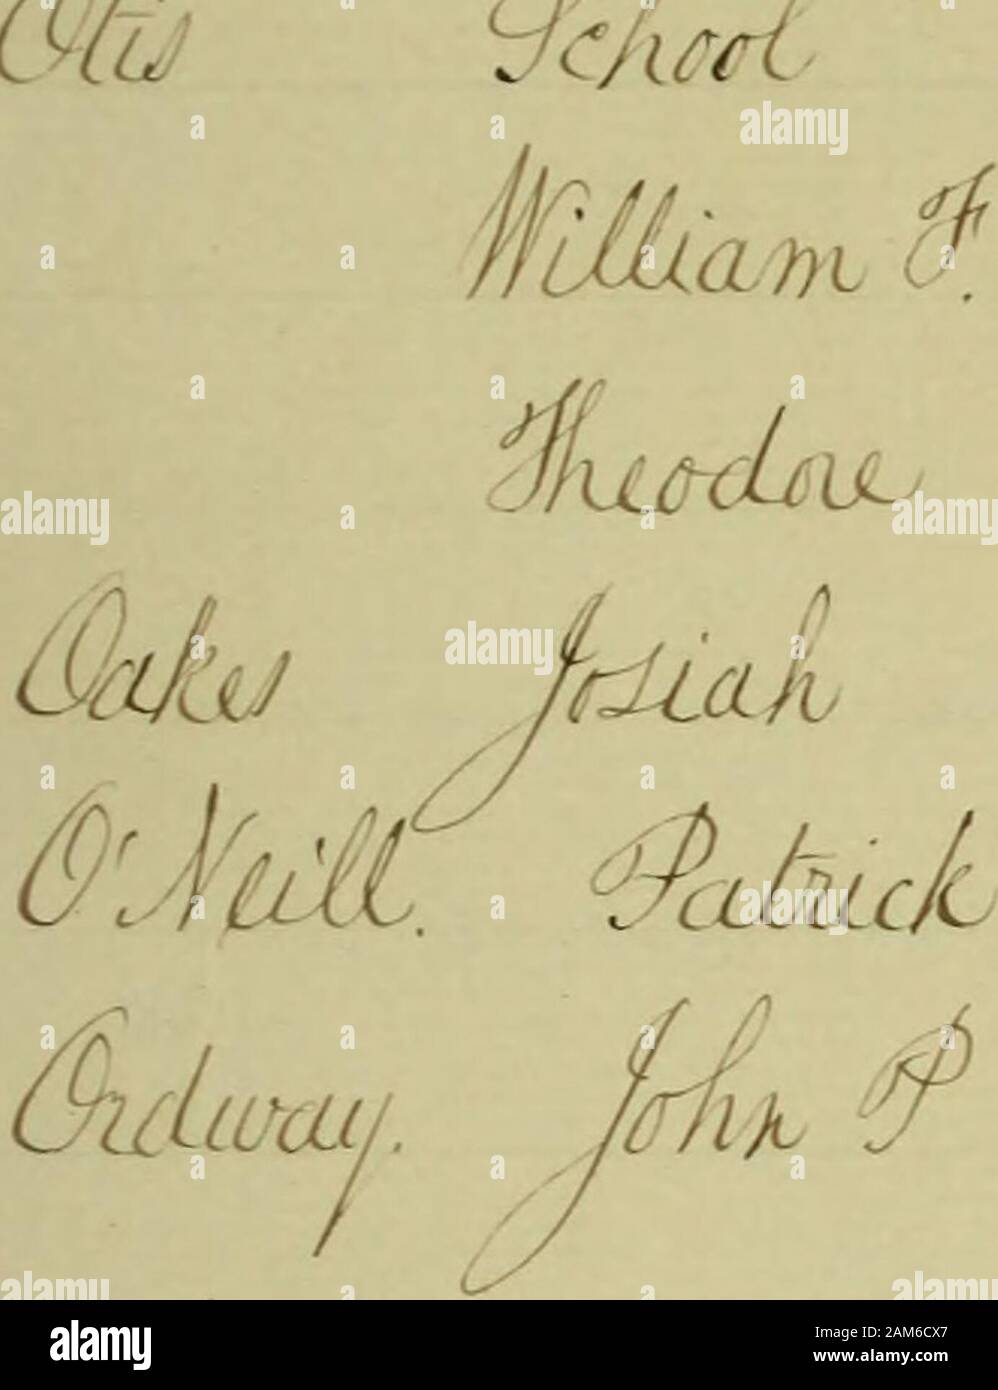 Otis School
William F.
Theodore
Oakes Josiah
O'Neill. Patrick
Ordway. John P
alamy
Image ID: 2AM6CX7
www.alamy.com